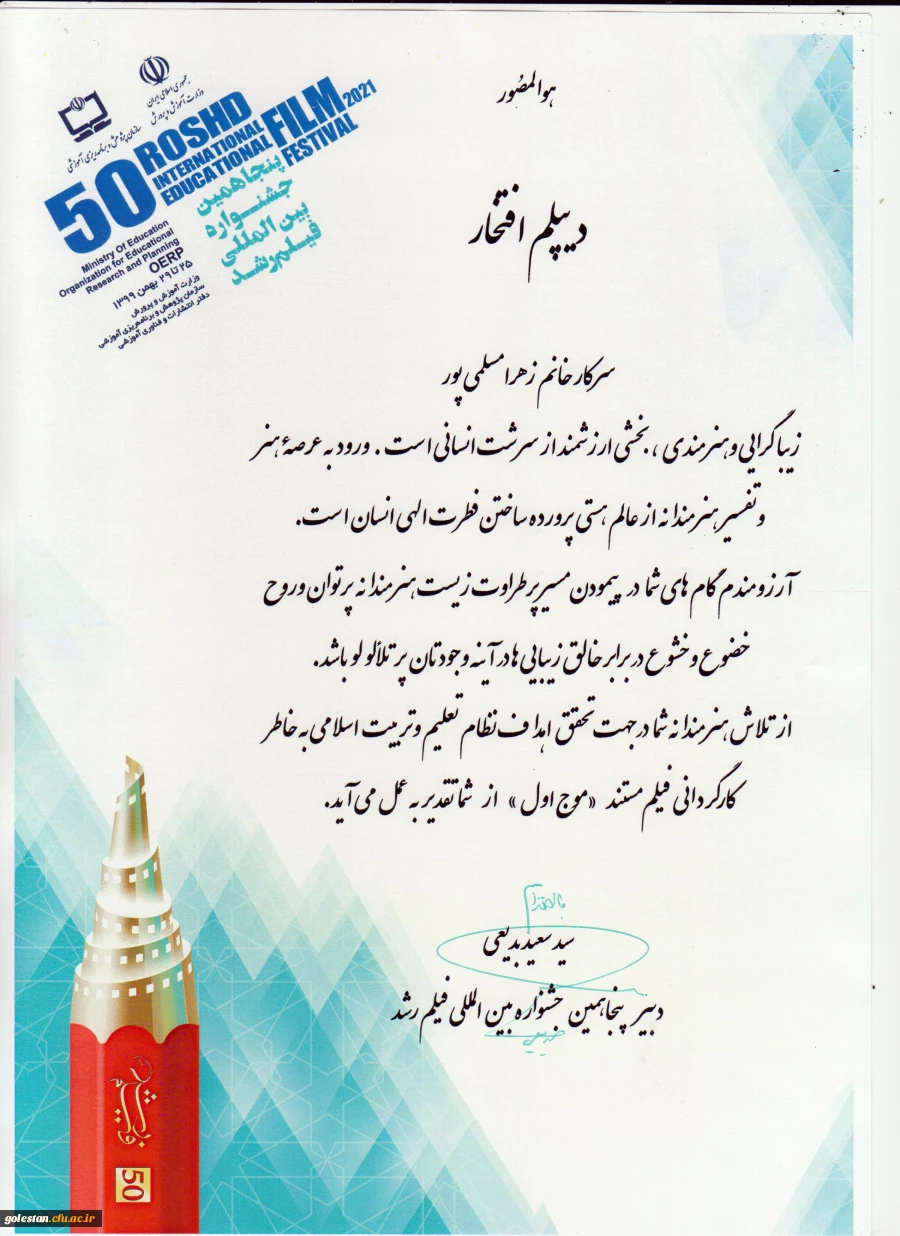 جمهوری اسلامی ایران
وزارت آموزش و پرورش
سازمان پژوهش و برنامه‌ریزی آموزشی
50 ROSHD
INTERNATIONAL
EDUCATIONAL FILM 2021
FESTIVAL
پنجاهمین
جشنواره
بین المللی
فیلم رشد
Ministry Of Education
Organization for Educational
Research and Planning
OERP
۲۵ تا ۲۹ بهمن ۱۳۹۹
وزارت آموزش و پرورش
سازمان پژوهش و برنامه‌ریزی آموزشی
دفتر انتشارات و فناوری آموزشی
هوالمصُور
دیپلم افتخار
سرکار خانم زهرا مسلمی پور
زیباگرایی و هنرمندی ، بخشی ارزشمند از سرشت انسانی است . ورود به عرصۀ هنر
و تفسیر هنرمندانه از عالم هستی پرورده ساختن فطرت الهی انسان است.
آرزومندم گام های شما در پیمودن مسیر پر طراوت زیست هنرمندانه پر توان و روح
خضوع و خشوع در برابر خالق زیبایی ها در آینه وجودتان پر تلألو لو باشد.
از تلاش هنرمندانه شما در جهت تحقق اهداف نظام تعلیم و تربیت اسلامی به خاطر
کارگردانی فیلم مستند «موج اول» از شما تقدیر به عمل می آید.
سید سعید بدیعی
دبیر پنجاهمین جشنواره بین المللی فیلم رشد
50
golestan.cfu.ac.ir